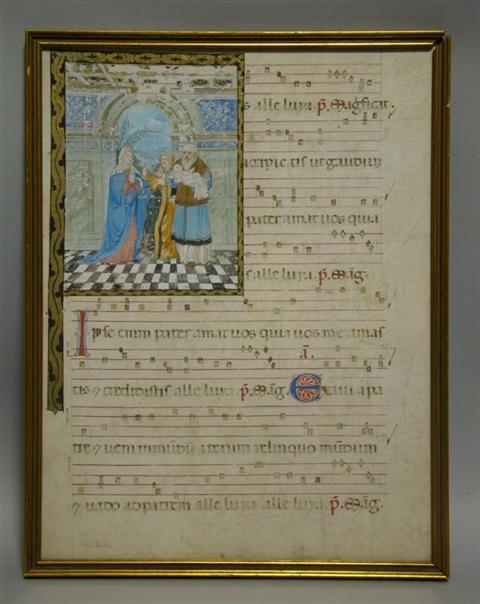 s alle luya. p̄. Magnficat.
accipie tis ut gaudium
pater amat uos quia
s alle luya. p̄. Mag.
Ipse enim pater amat uos quia uos me amas
tis ⁊ credidistis alle luya. p̄. Mag. Exiui a pa
tre ⁊ ueni in mūdū iterum relinquo mūdum
⁊ uado ad patrem alle luya alle luya. p̄. Mag.